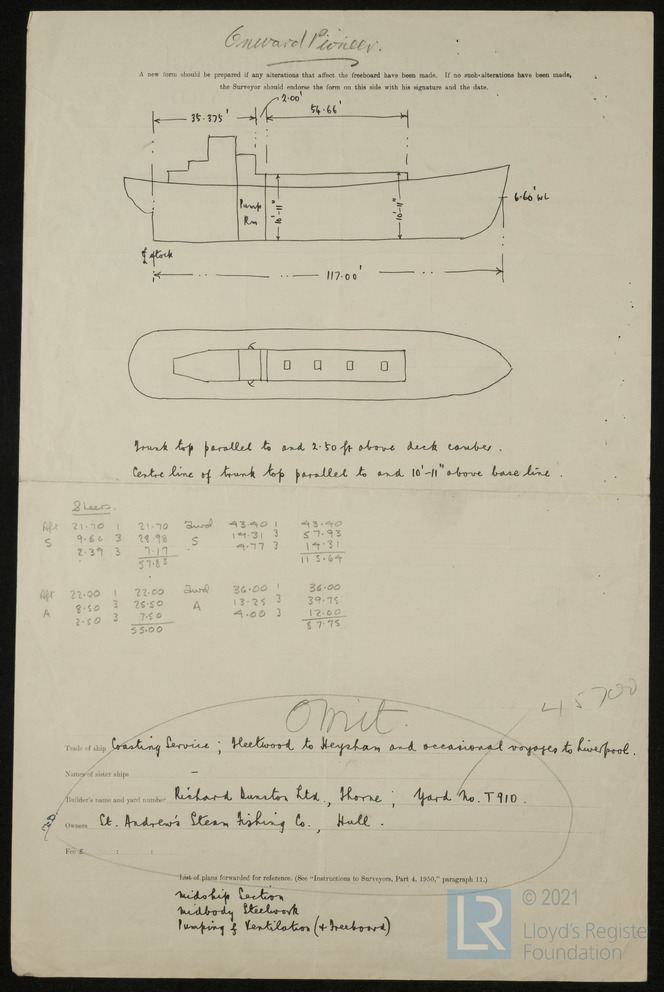 Onward Pioneer.
A new form should be prepared if any alterations that affect the freeboard have been made. If no such alterations have been made,
the Surveyor should endorse the form on this side with his signature and the date.
2.00'
35.375' 54.66'
Pump
Rm
10'-11" 10'-11"
6.60' WL
℄ stock
117.00'
Trunk top parallel to and 2.50 ft above deck camber.
Centre line of trunk top parallel to and 10'-11" above base line.
Sheers.
Aft 21.70 1 21.70 Fwd 43.40 1 43.40
S 9.66 3 28.98 S 19.31 3 57.93
2.39 3 7.17 4.77 3 14.31
57.85 115.64
Aft 22.00 1 22.00 Fwd 36.00 1 36.00
A 8.50 3 25.50 A 13.25 3 39.75
2.50 3 7.50 4.00 3 12.00
55.00 87.75
Omit.
45700
Trade of ship Coasting Service; Fleetwood to Heysham and occasional voyages to Liverpool.
Names of sister ships –
Builder's name and yard number Richard Dunston Ltd., Thorne; Yard No. T910.
Owners St. Andrew's Steam Fishing Co., Hull.
Fee £ : :
List of plans forwarded for reference. (See "Instructions to Surveyors, Part 4, 1950," paragraph 11.)
Midship Section
Midbody Steelwork
Pumping & Ventilation (& Freeboard)
LR
© 2021
Lloyd's Register
Foundation